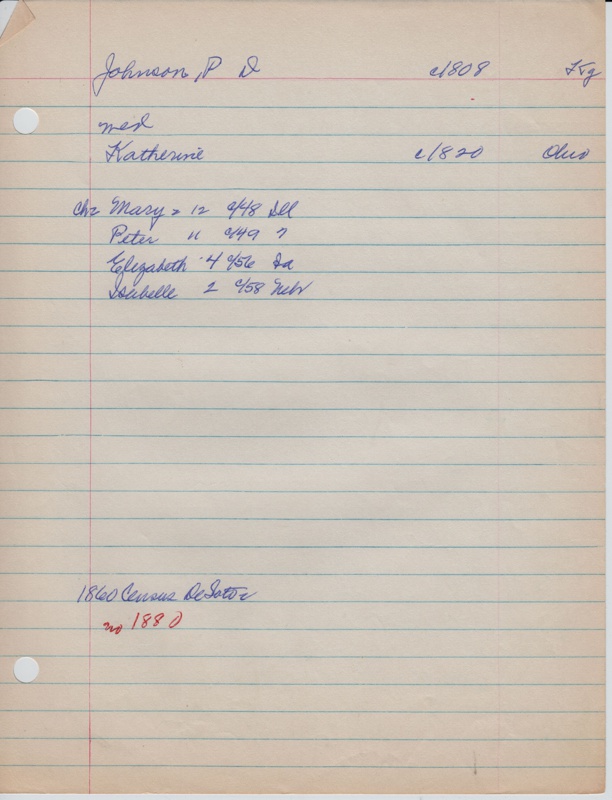 Johnson, P D c/808 Ky
med
Katherine c/820 Ohio
Ch= Mary = 12 c/48 Ill
Peter 11 c/49 ?
Elizabeth 4 c/56 Ia
Isabelle 2 c/58 Nebr
1860 Census DeSoto
no 1880